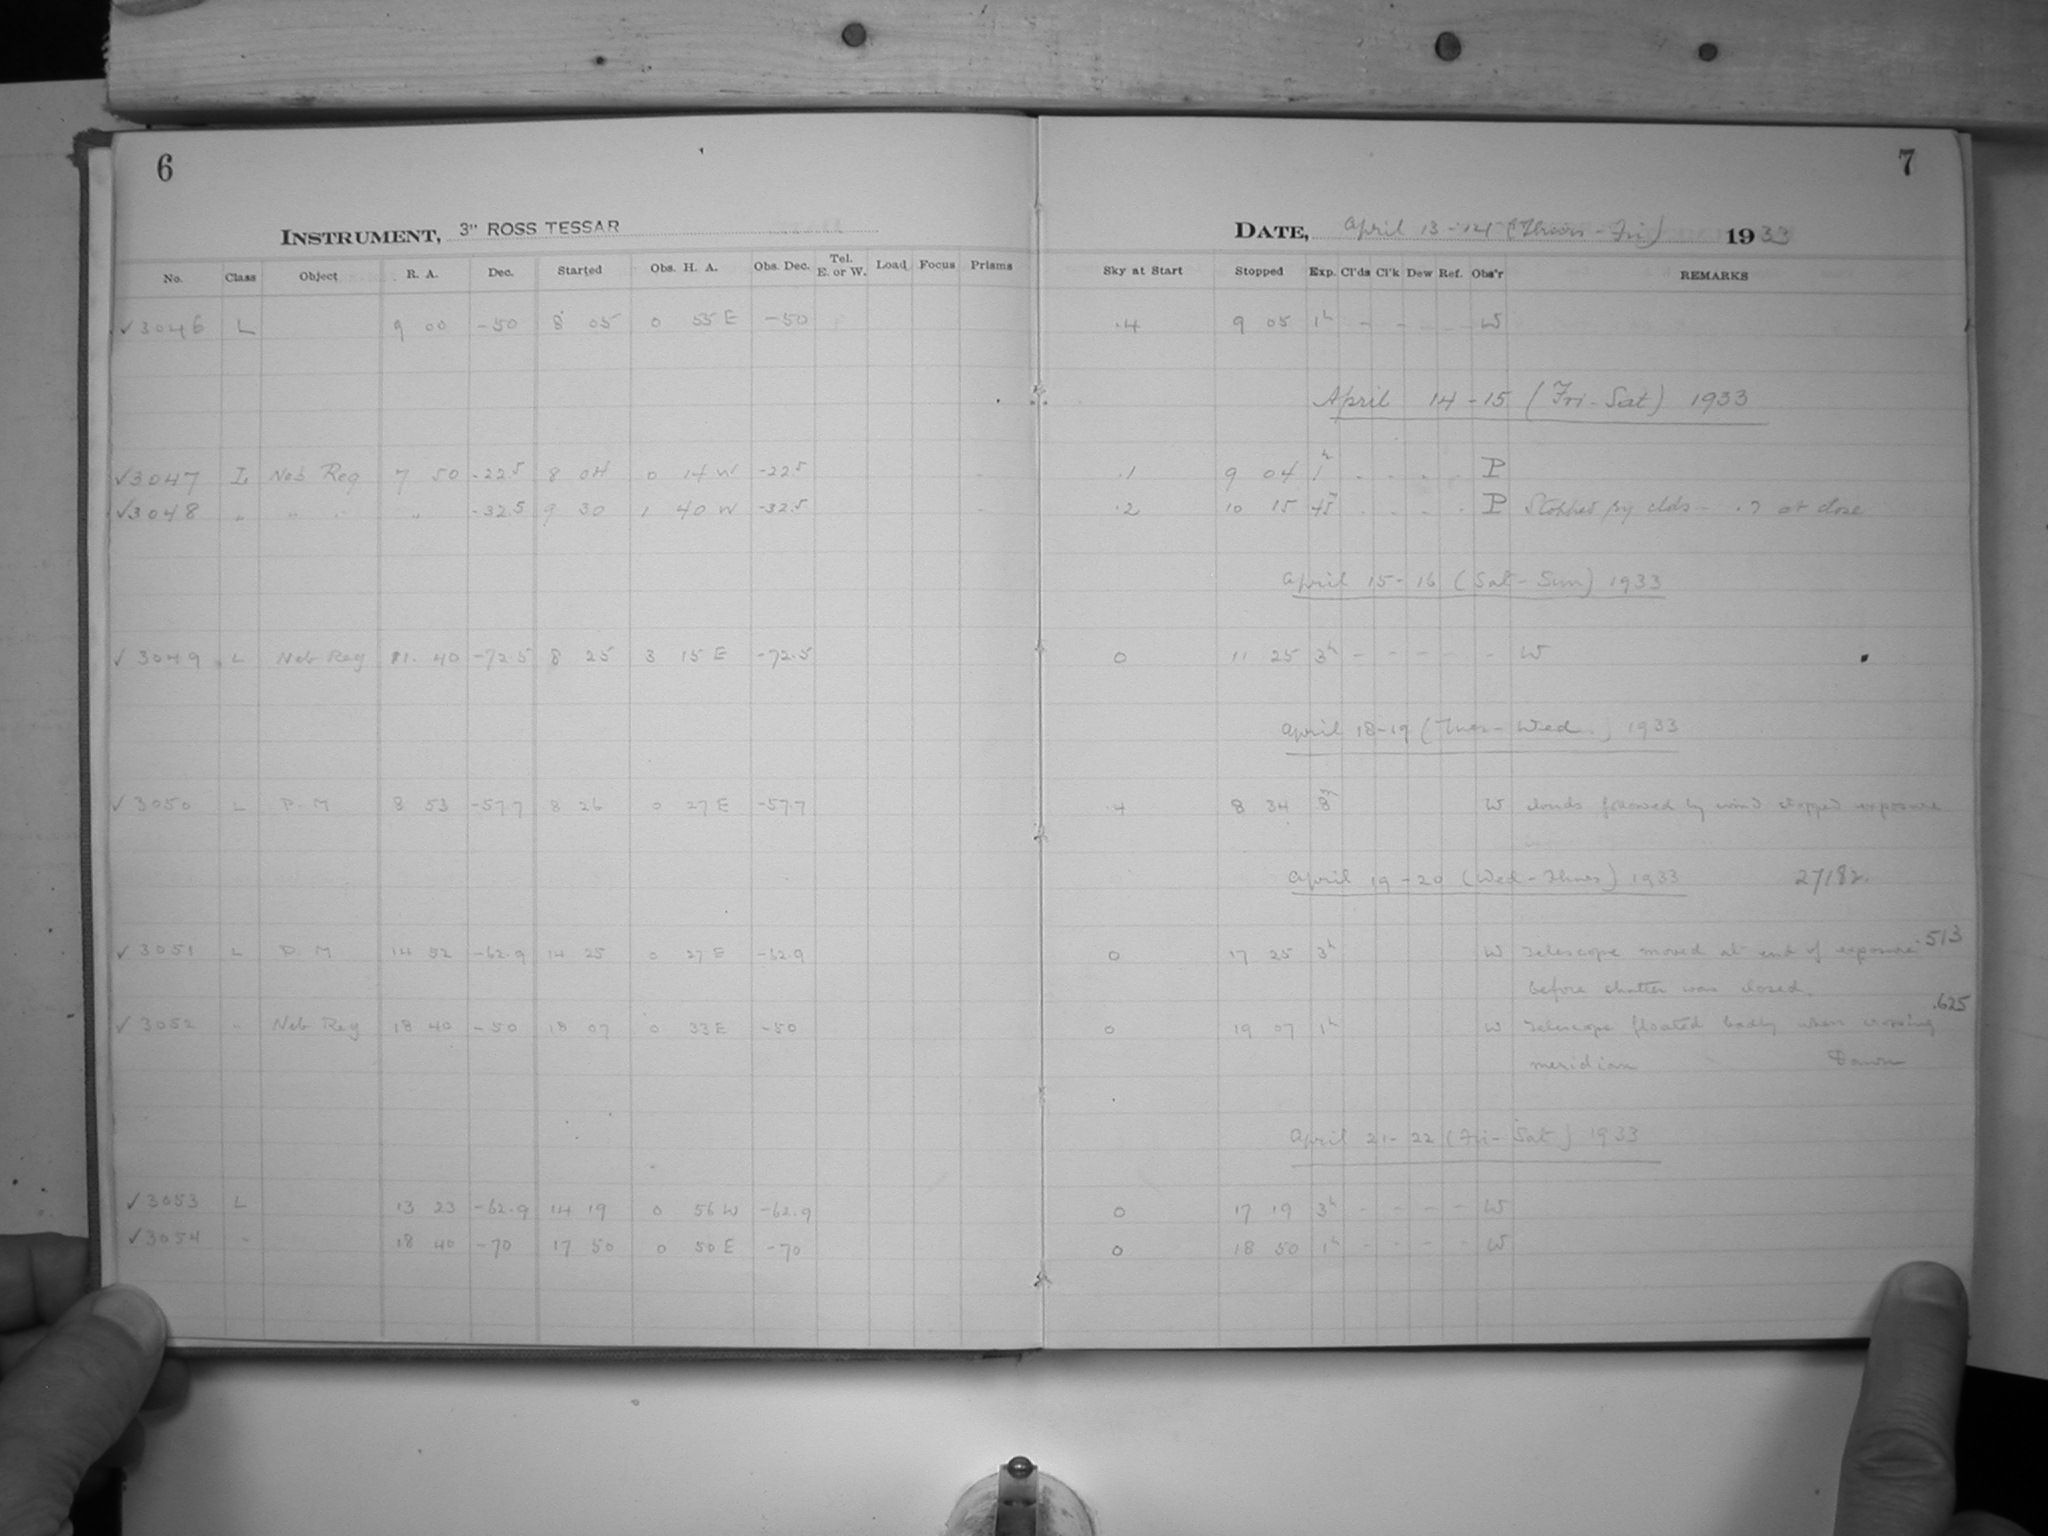 6
7
INSTRUMENT, 3" ROSS TESSAR
DATE, April 13-14 (Thurs-Fri) 1933
No. Class Object R. A. Dec. Started Obs. H. A. Obs. Dec. Tel. E. or W. Load Focus Prisms Sky at Start Stopped Exp. Cl'ds Cl'k Dew Ref. Obs'r REMARKS
✓3046 L 9 00 -50 8 05 0 55 E -50 .4 9 05 1h - - W
April 14-15 (Fri-Sat) 1933
✓3047 L Neb Reg 7 50 -22.5 8 04 0 14 W -22.5 .1 9 04 1h - - - - P
✓3048 " " " " -32.5 9 30 1 40 W -32.5 .2 10 15 45m - - - - P Stopped by clds - .7 at close
April 15-16 (Sat-Sun) 1933
✓ 3049 L Neb Reg 11 40 -72.5 8 25 3 15 E -72.5 0 11 25 3h - - - - - W
April 18-19 (Tues-Wed.) 1933
✓ 3050 L D. M 8 53 -57.7 8 26 0 27 E -57.7 .4 8 34 8m W clouds followed by wind stopped exposure
April 19-20 (Wed-Thurs) 1933 27182
✓ 3051 L D. M 14 52 -62.9 14 25 0 27 E -62.9 0 17 25 3h W Telescope moved at end of exposure .513
before shutter was closed.
✓ 3052 " Neb Reg 18 40 -50 18 07 0 33 E -50 0 19 07 1h W Telescope floated badly when crossing .625
meridian Dawn
April 21-22 (Fri-Sat) 1933
✓ 3053 L 13 23 -62.9 14 19 0 56 W -62.9 0 17 19 3h - - - - W
✓3054 " 18 40 -70 17 50 0 50 E -70 0 18 50 1h - - - - W